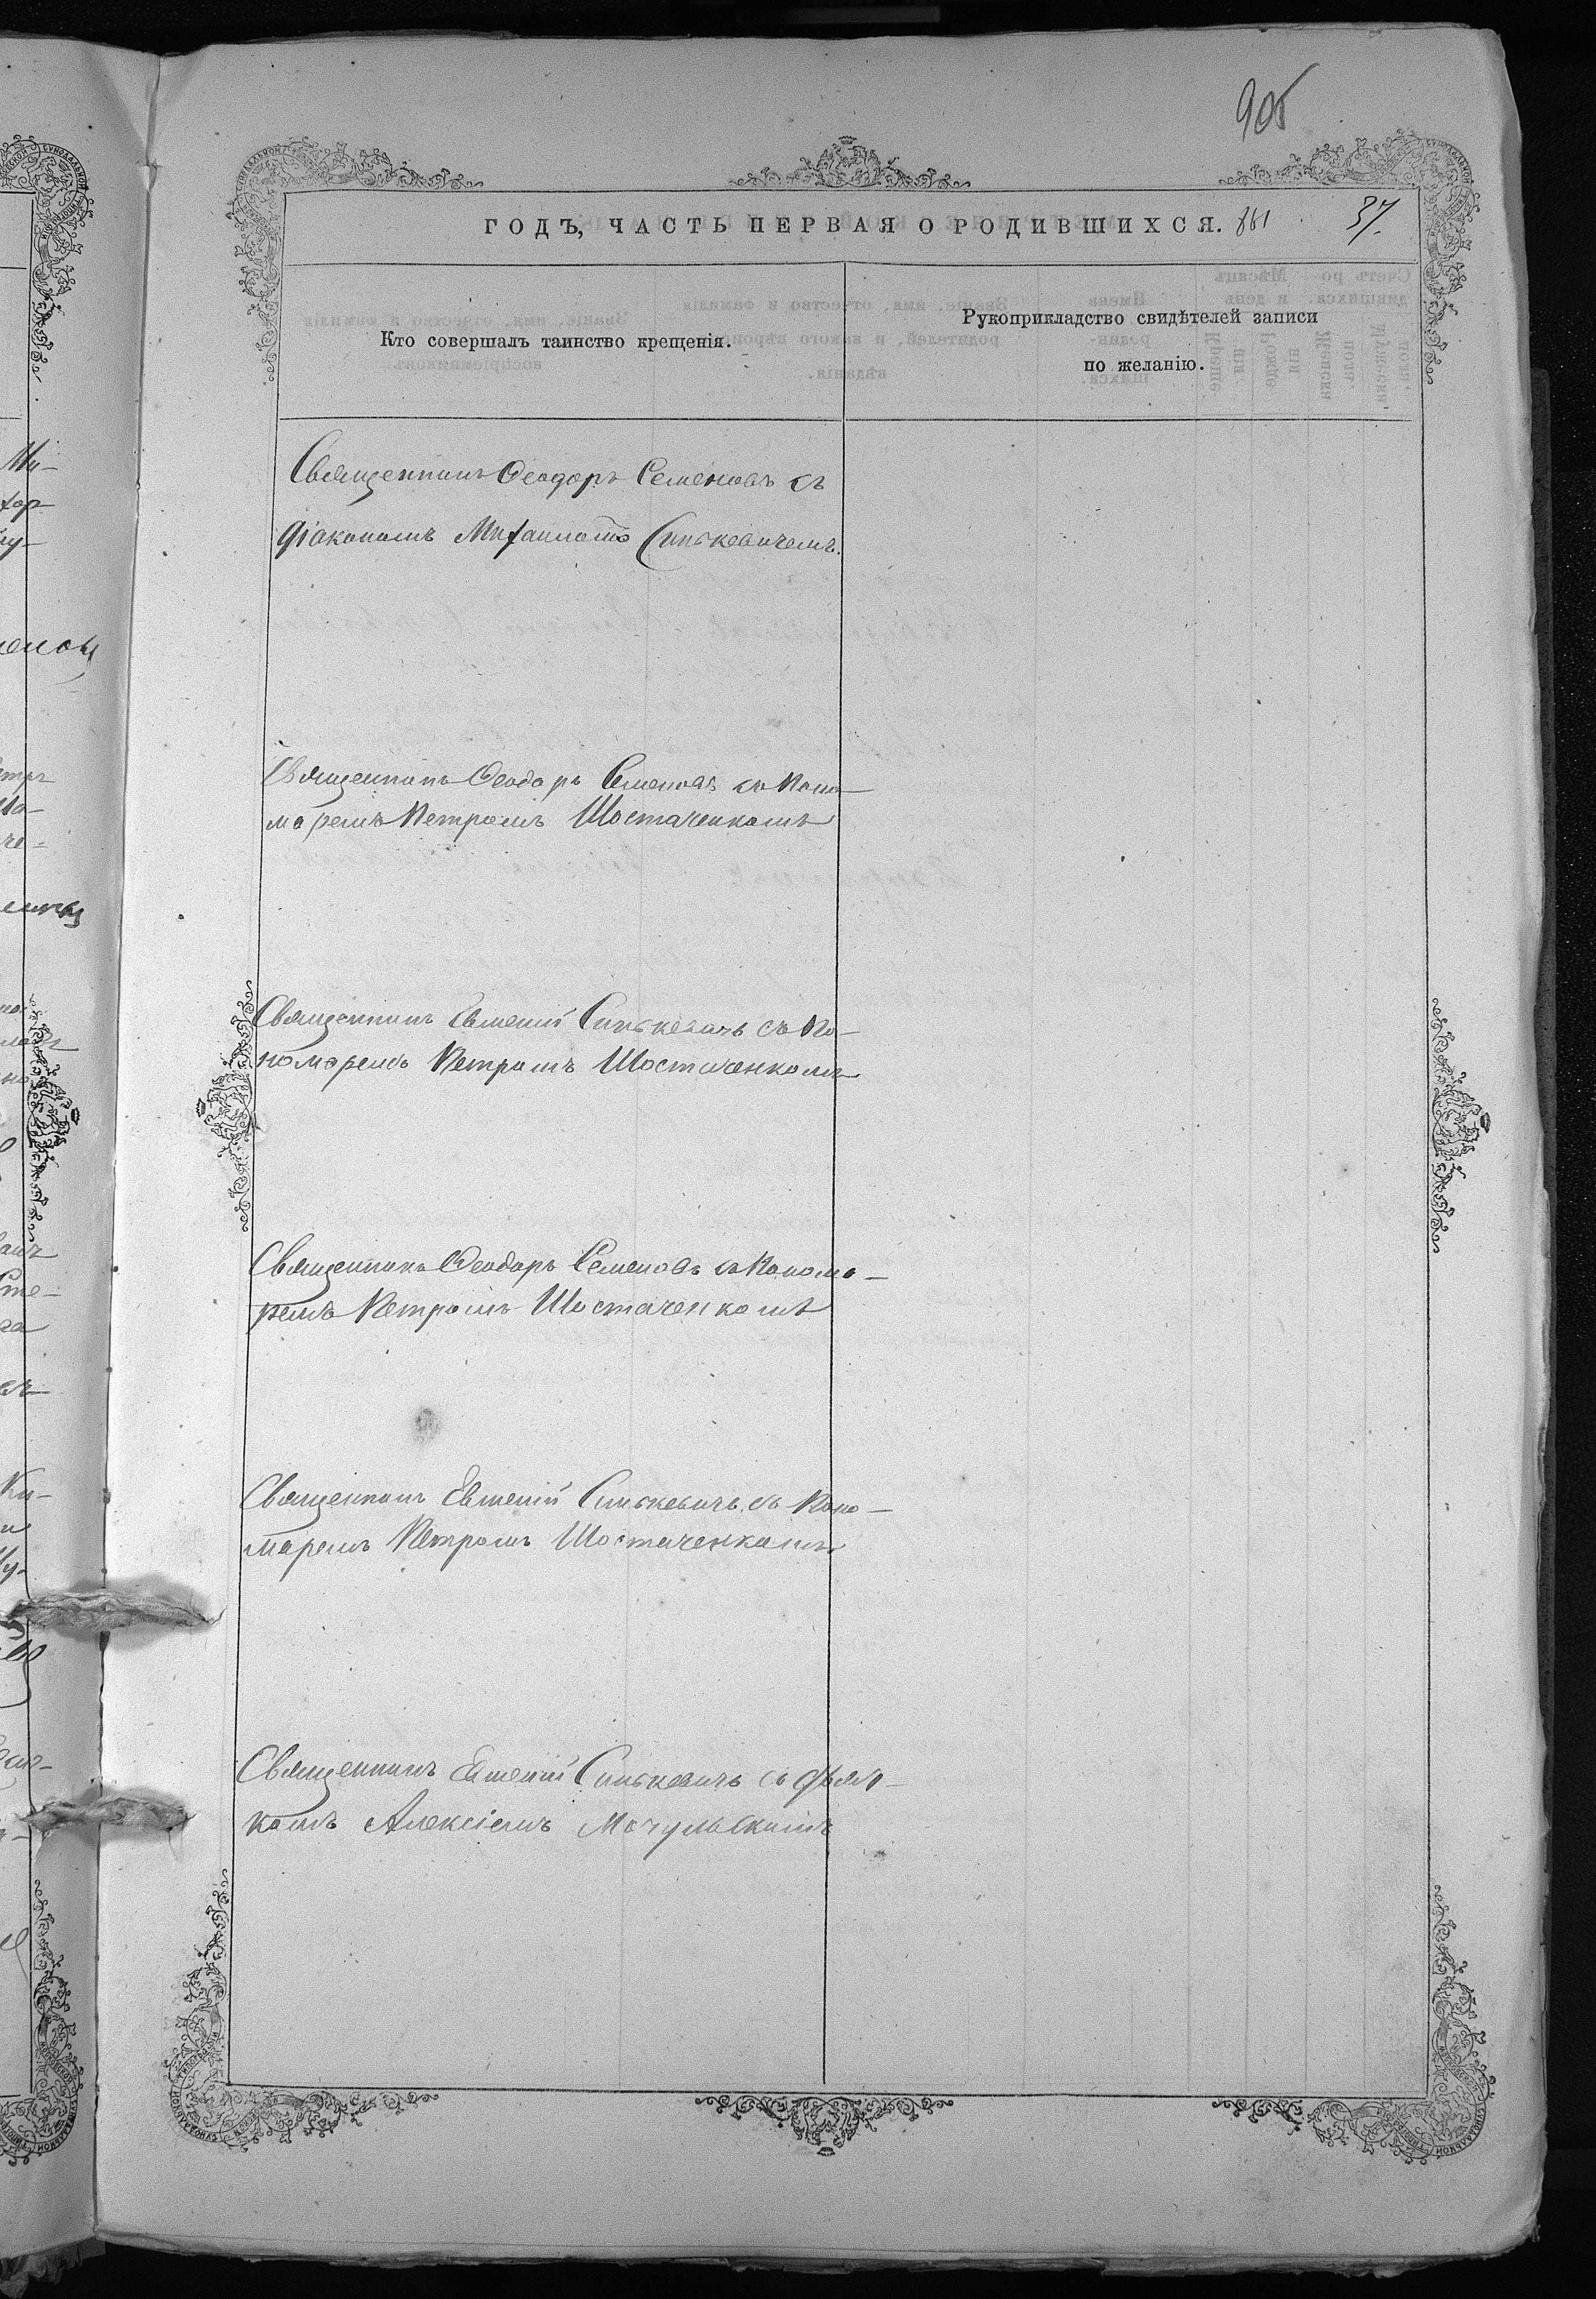 905
ГОДЪ, ЧАСТЬ ПЕРВАЯ О РОДИВШИХСЯ. 861 37.
Кто совершалъ таинство крещенія.
Рукоприкладство свидѣтелей записи
по желанію.
Священникъ Ѳеодоръ Семеновъ съ
діакономъ Михаиломъ Синькевичемъ.
Священникъ Ѳеодоръ Семеновъ съ Поно-
маремъ Петромъ Шостаченкомъ
Священникъ Евгеній Синькевичъ съ По-
номаремъ Петромъ Шостаченкомъ
Священникъ Ѳеодоръ Семеновъ съ Понома-
ремъ Петромъ Шостаченкомъ
Священникъ Евгеній Синькевичъ съ Поно-
маремъ Петромъ Шостаченкомъ
Священникъ Евгеній Синькевичъ съ дьяч-
комъ Алексіемъ Мочульскимъ